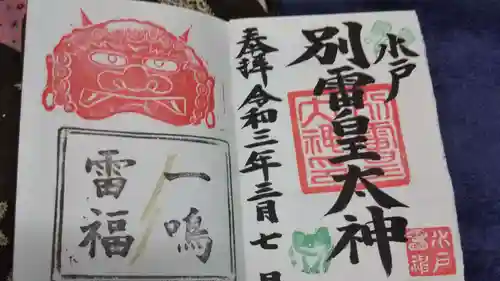 水戸
別雷皇太神
奉拝 令和三年三月七日
別雷皇
大神印
水戸
雷神
一鳴
雷福